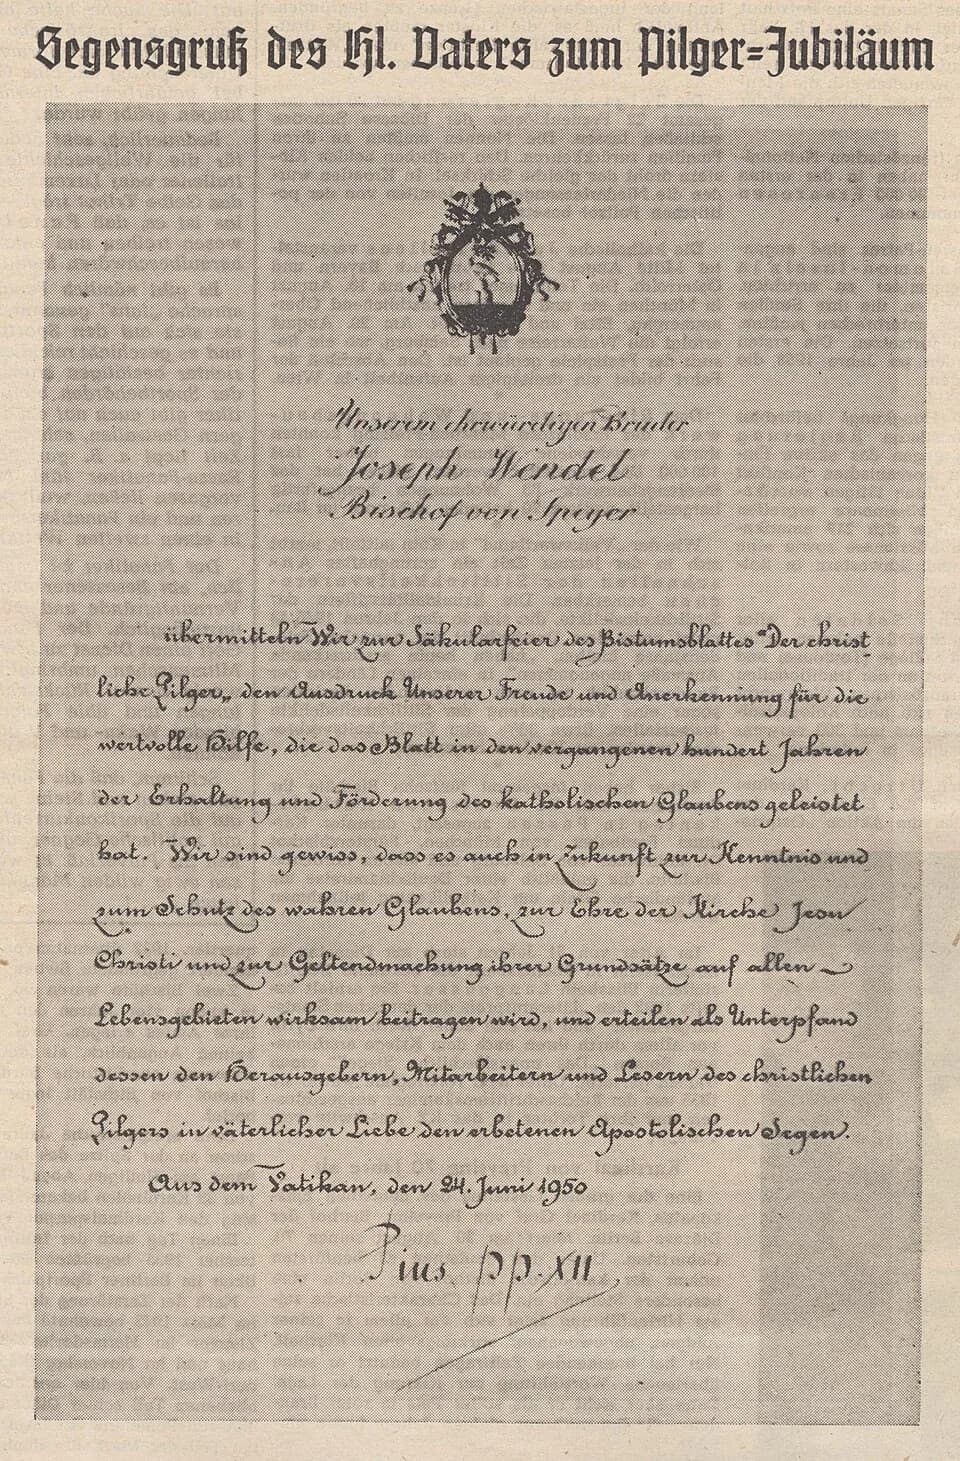 Segensgruß des Hl. Vaters zum Pilger=Jubiläum
Unserem ehrwürdigen Bruder
Joseph Wendel
Bischof von Speyer
übermitteln Wir zur Säkularfeier des Bistumsblattes "Der christ
liche Pilger„ den Ausdruck Unserer Freude und Anerkennung für die
wertvolle Hilfe, die das Blatt in den vergangenen hundert Jahren
der Erhaltung und Förderung des katholischen Glaubens geleistet
hat. Wir sind gewiss, dass es auch in Zukunft zur Kenntnis und
zum Schutz des wahren Glaubens, zur Ehre der Kirche Jesu
Christi und zur Geltendmachung ihrer Grundsätze auf allen
Lebensgebieten wirksam beitragen wird, und erteilen als Unterpfand
dessen den Herausgebern, Mitarbeitern und Lesern des christlichen
Pilgers in väterlicher Liebe den erbetenen Apostolischen Segen.
Aus dem Vatikan, den 24. Juni 1950
Pius pp. XII